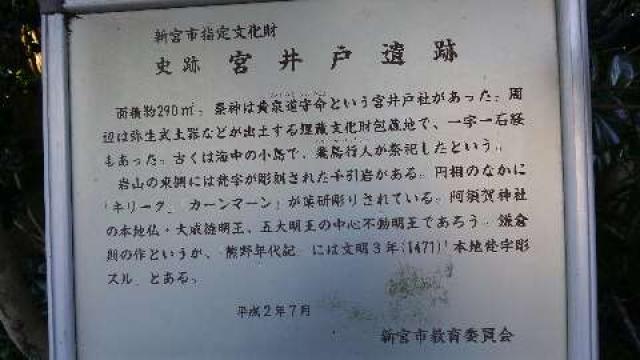 新宮市指定文化財
史跡 宮井戸遺跡
面積約290㎡。祭神は黄泉道守命という宮井戸社があった。周
辺は弥生式土器などが出土する埋蔵文化財包蔵地で、一字一石経
もあった。古くは海中の小島で、乗島行人が祭祀したという。
岩山の東側には梵字が彫刻された千引岩がある。円相のなかに
「キリーク」「カーンマーン」が薬研彫りされている。阿須賀神社
の本地仏・大威徳明王、五大明王の中心不動明王であろう。鎌倉
期の作というが、「熊野年代記」には文明3年(1471)「本地梵字彫
スル」とある。
平成2年7月
新宮市教育委員会